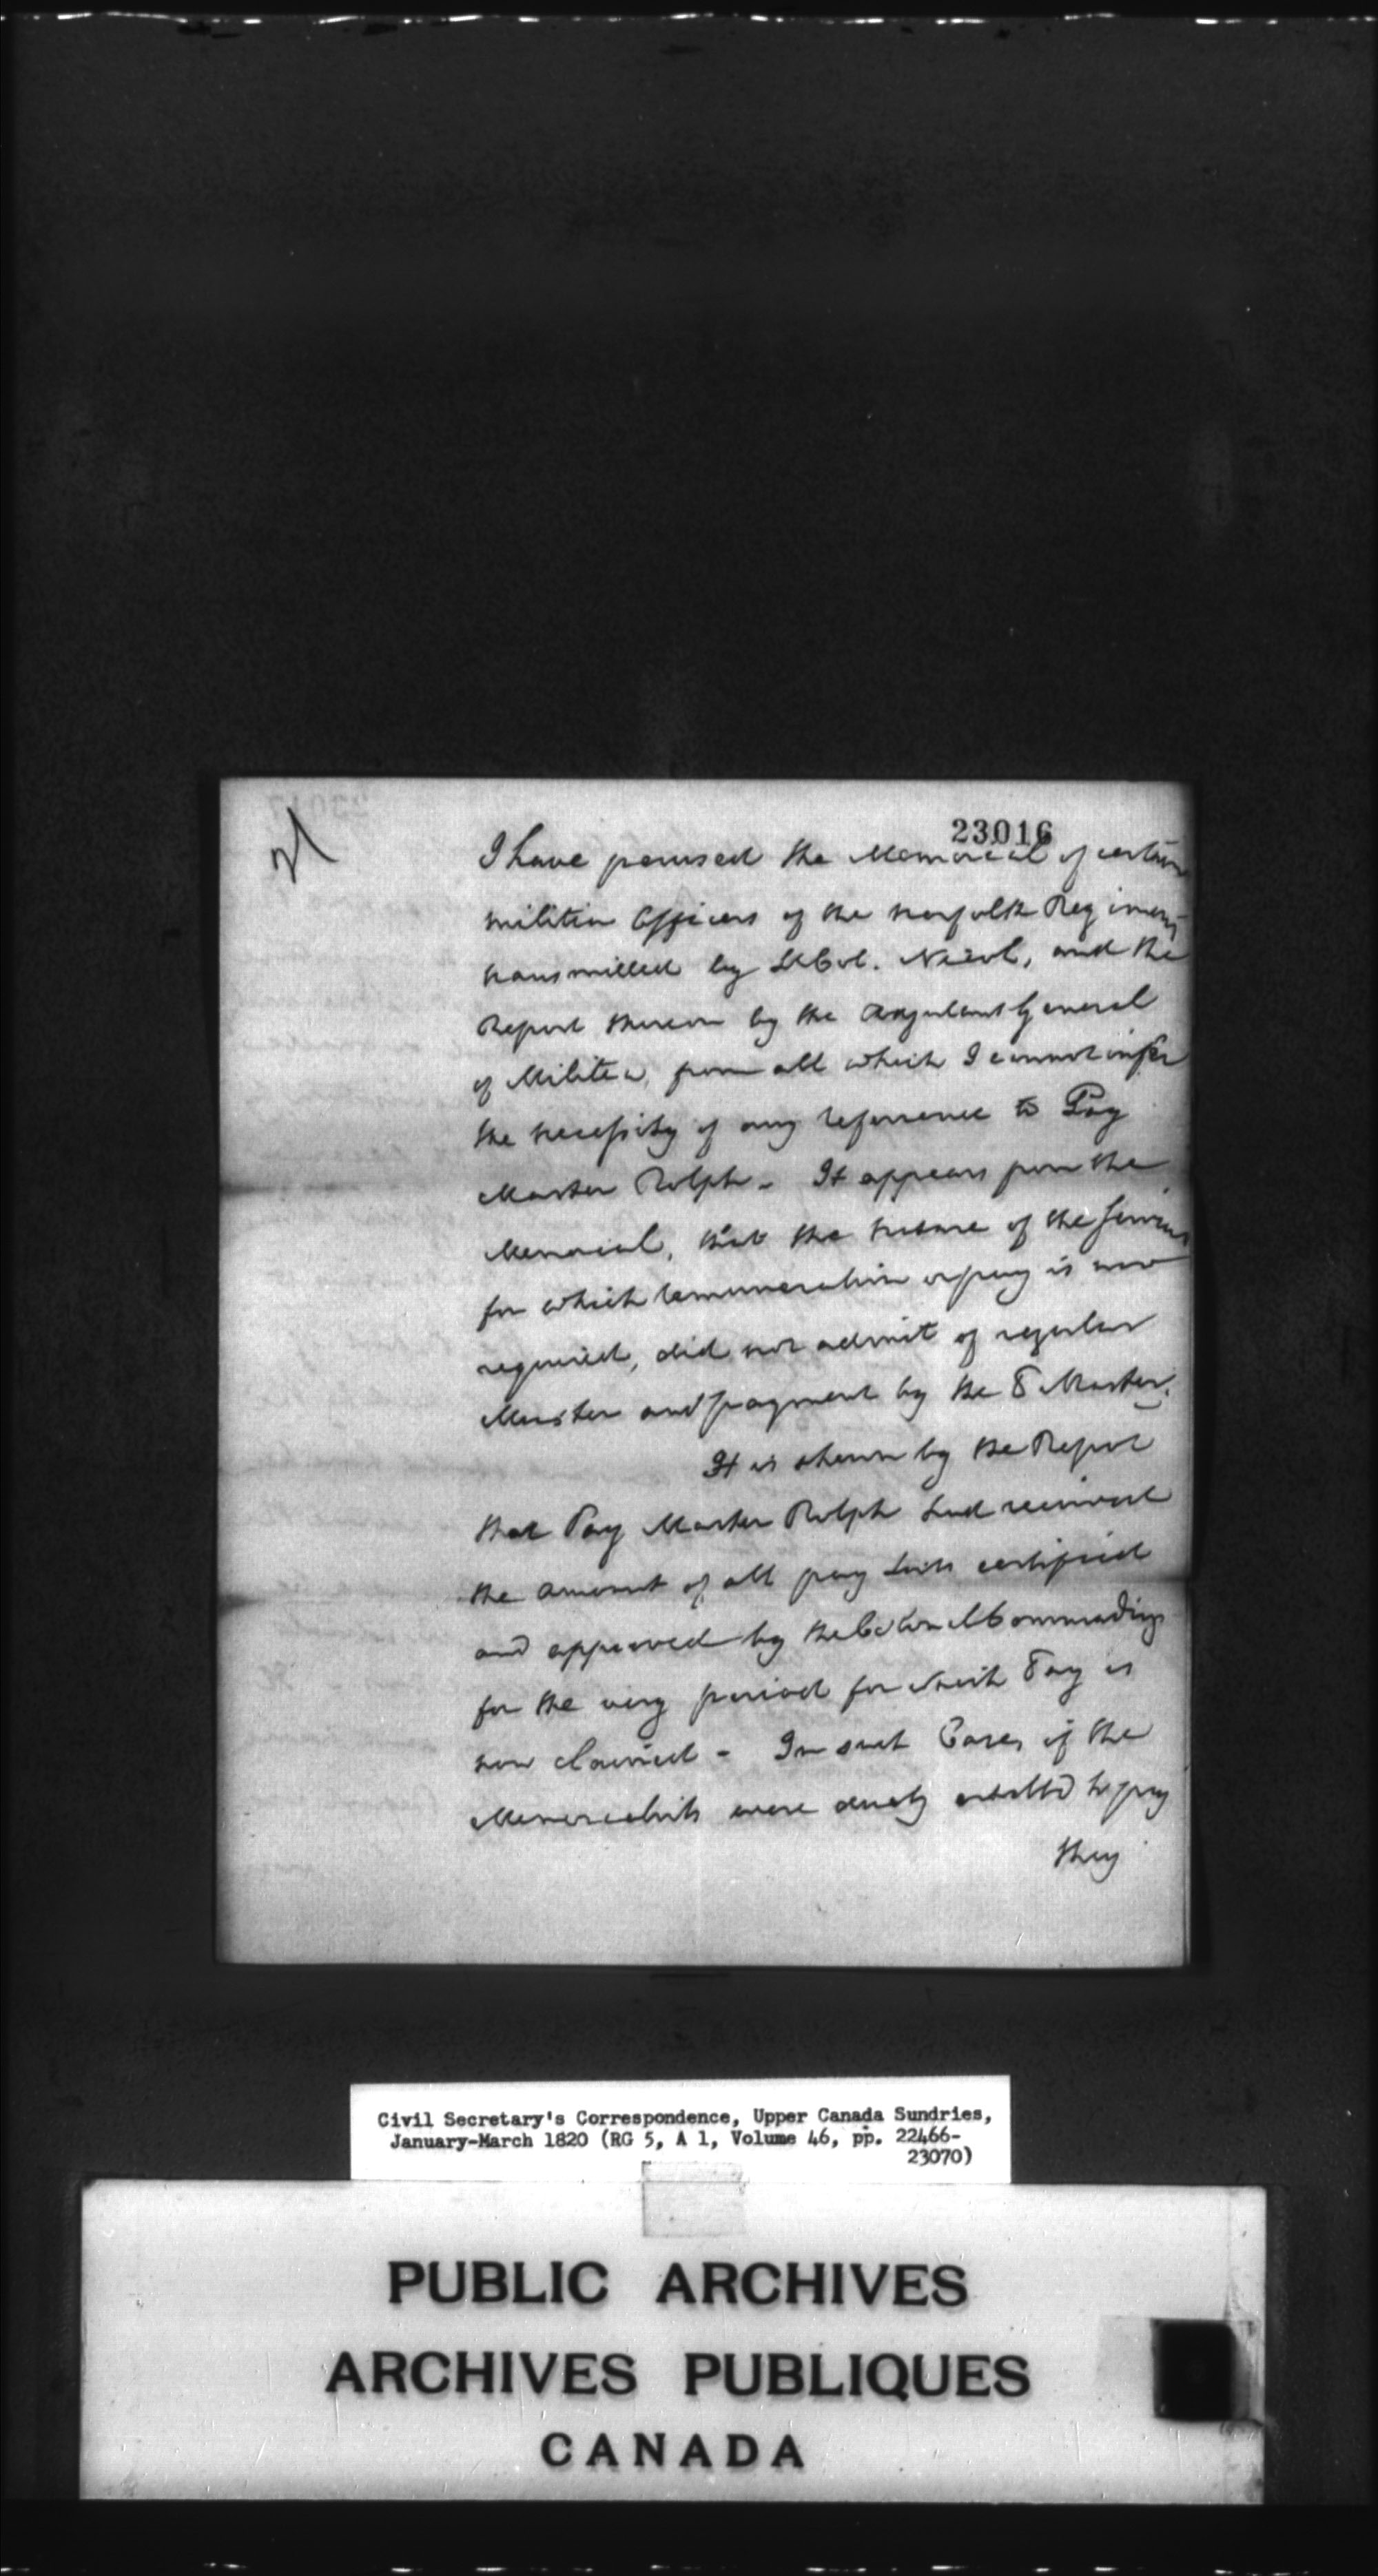 23016
I have perused the Memorial of certain
militia Officers of the norfolk Regiment
transmitted by Lt Col. Nicol, and the
Report thereon by the Adjutant General
of Militia, from all which I cannot infer
the necessity of any reference to Pay
Master Rolph - It appears from the
Memorial, that the nature of the services
for which remuneration or pay is now
required, did not admit of regular
Muster and payment by the P Master.
It is shewn by the Report
that Pay Master Rolph had received
the amount of all pay lists certified
and approved by the Colonel Commanding
for the very period for which Pay is
now claimed - In such Cases if the
Memorialists were entitled to pay
they
Civil Secretary's Correspondence, Upper Canada Sundries,
January-March 1820 (RG 5, A 1, Volume 46, pp. 22466-
23070)
PUBLIC ARCHIVES
ARCHIVES PUBLIQUES
CANADA